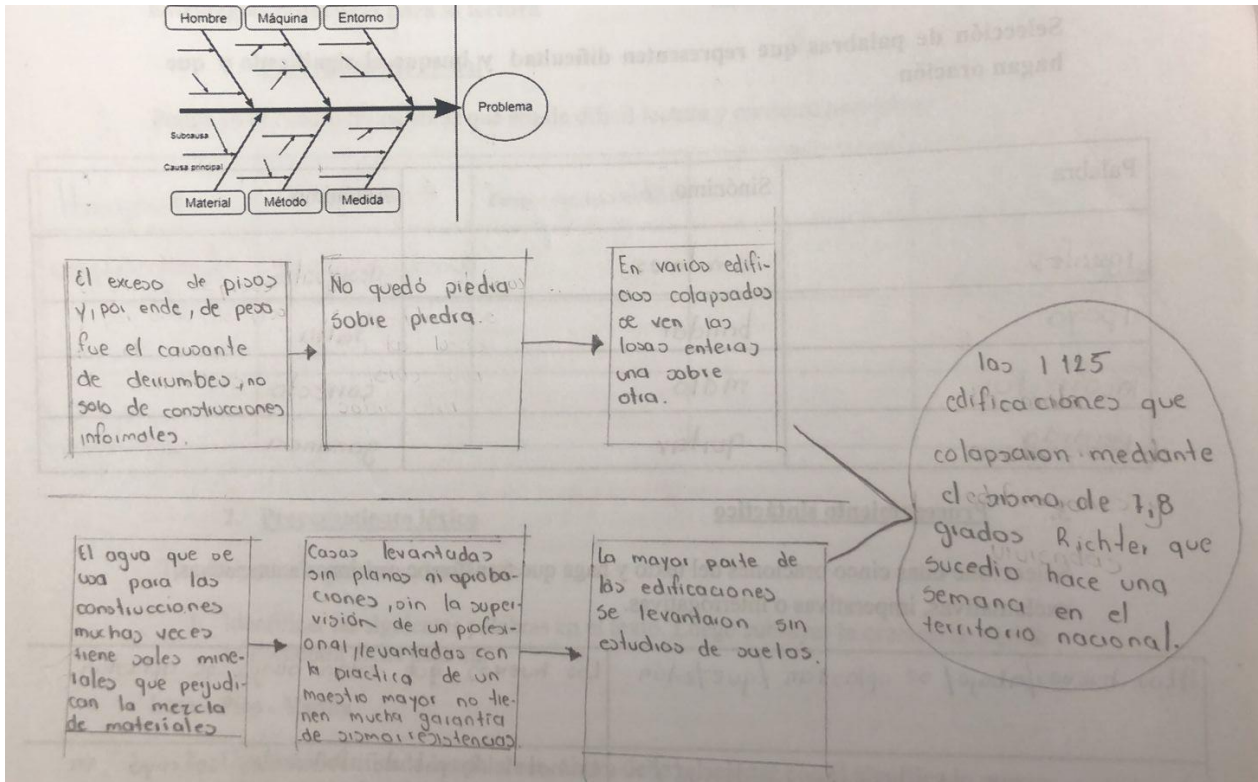 Hombre
Máquina
Entorno
Problema
Subcausa
Causa principal
Material
Método
Medida
El exceso de pisos
y, por ende, de peso
fue el causante
de derrumbes, no
solo de construcciones
informales.
No quedó piedra
sobre piedra.
En varios edifi-
cios colapsados
se ven las
losas enteras
una sobre
otra.
las 1 125
edificaciones que
colapsaron mediante
el sismo de 7,8
grados Richter que
sucedio hace una
semana en el
territorio nacional.
El agua que se
usa para las
construcciones
muchas veces
tiene sales mine-
rales que perjudi-
can la mezcla
de materiales
Casas levantadas
sin planos ni aproba-
ciones, sin la super-
visión de un profesi-
onal, levantadas con
la practica de un
maestro mayor no tie-
nen mucha garantía
de sismorresistencias.
La mayor parte de
las edificaciones
se levantaron sin
estudios de suelos.